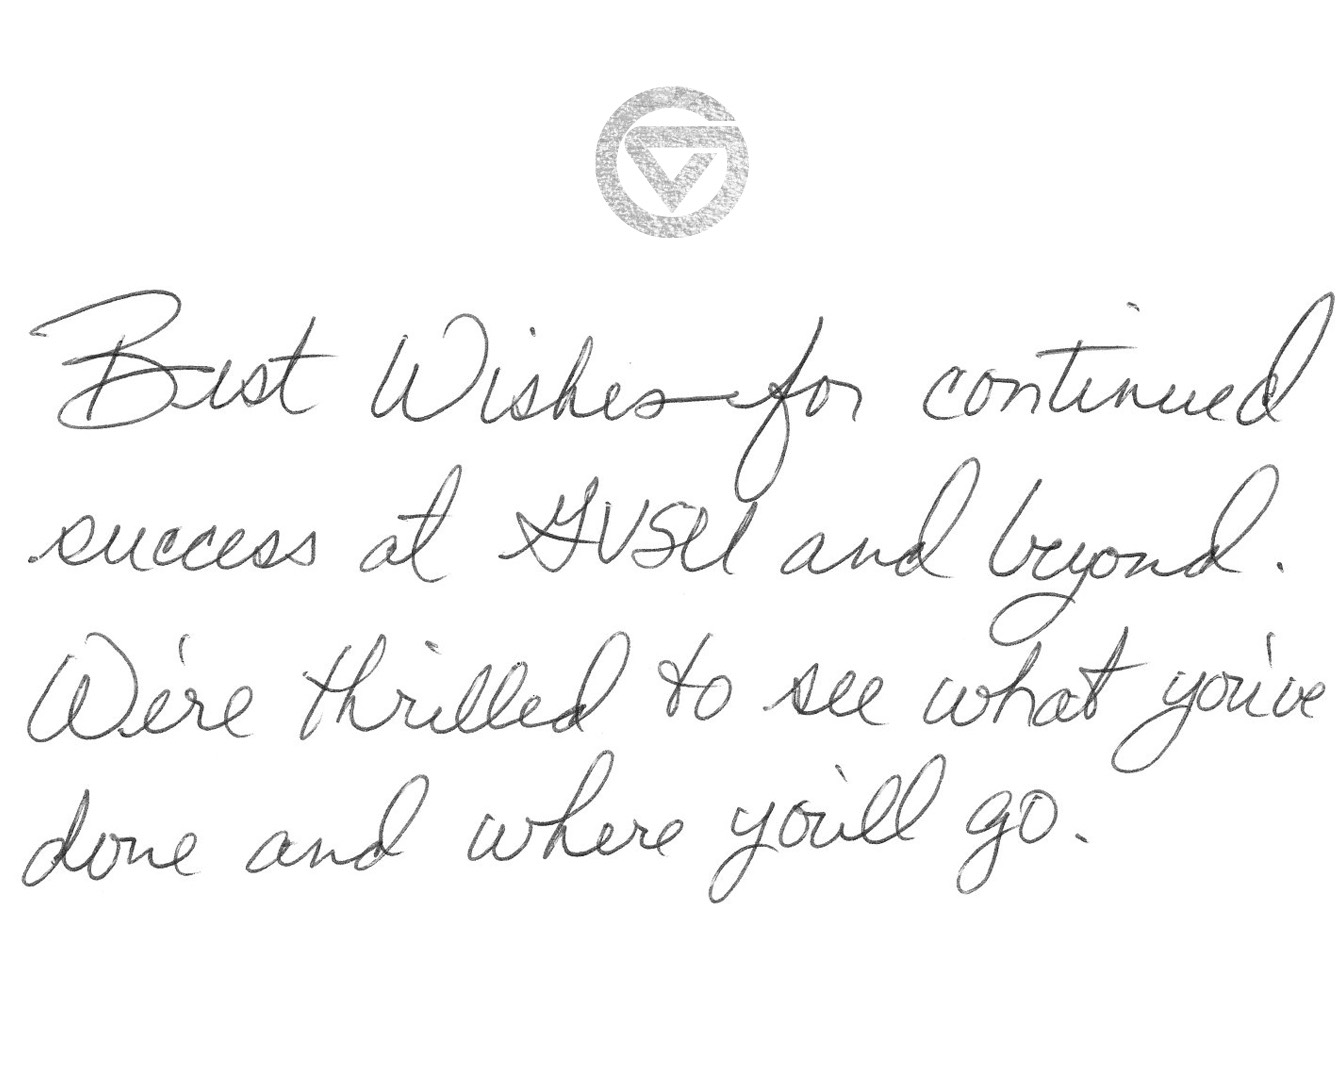 Best Wishes for continued
success at GVSU and beyond.
We're thrilled to see what you've
done and where you'll go.